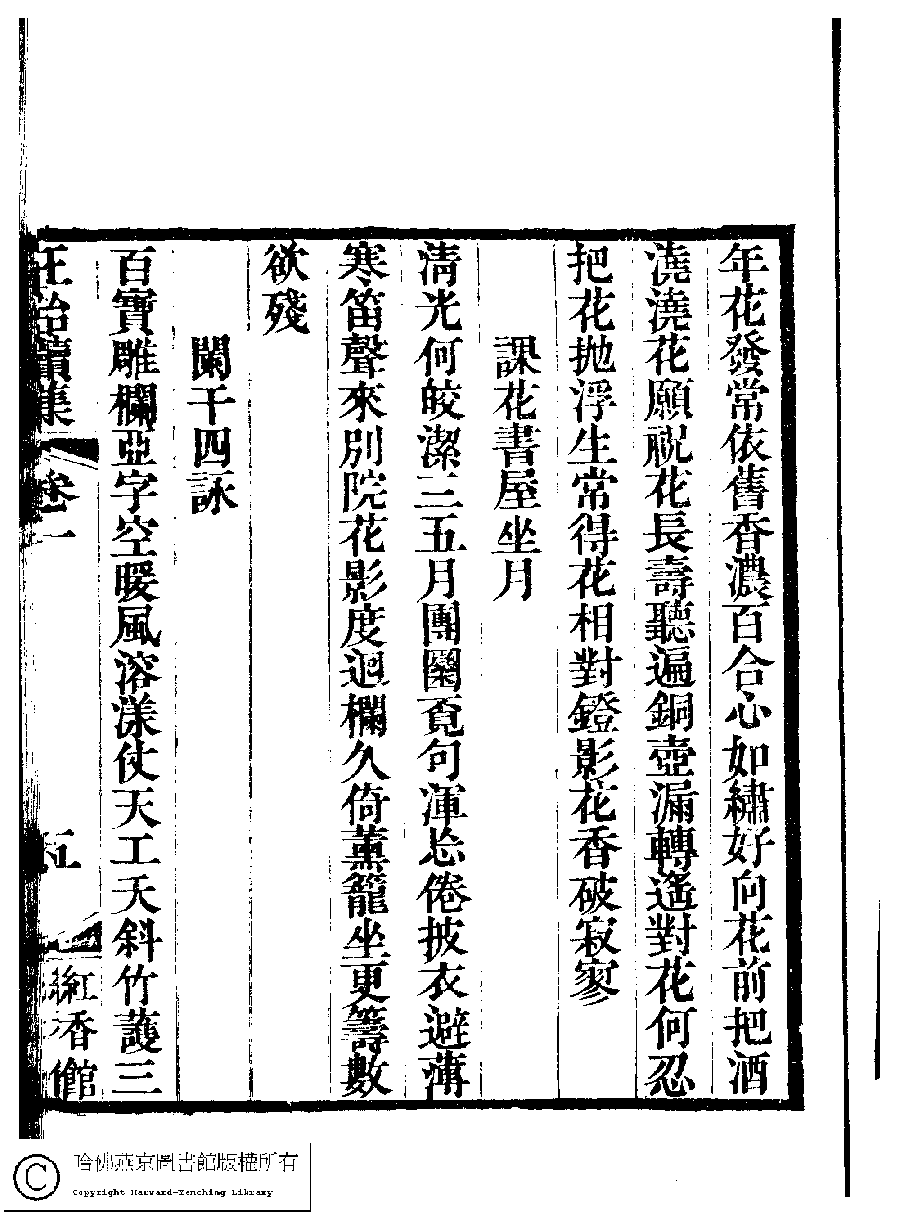 年花發常依舊香濃百合心如繡好向花前把酒
澆澆花願祝花長壽聽遍銅壺漏轉遙對花何忍
把花拋浮生常得花相對鐙影花香破寂寥
課花書屋坐月
清光何皎潔三五月團圞覓句渾忘倦披衣避薄
寒笛聲來別院花影度迴欄久倚薰籠坐更籌數
欲殘
闌干四詠
百寶雕欄亞字空暖風溶漾仗天工夭斜竹護三
續集 卷一 五 紅香館
哈佛燕京圖書館版權所有
Copyright Harvard-Yenching Library